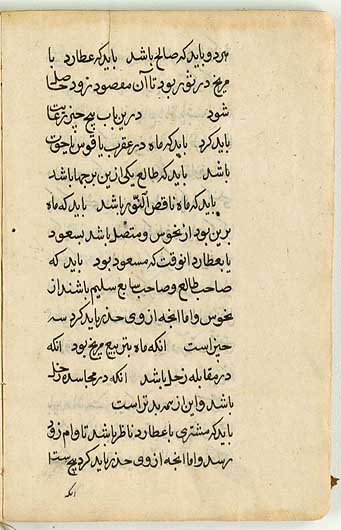 هر دو باید که صالح باشد باید که عطارد با
مریخ در ثور بود تا آن مقصود زود حاصل
شود در ین باب پنج چیز رعایت
باید کرد باید که ماه در عقرب یا قوس یا حوت
باشد باید که طالع یکی ازین برجها باشد
باید که ماه ناقص النور باشد باید که ماه
برین بود از نحوس و متصل باشد بسعود
یا بعطارد انوقت که مسعود بود باید که
صاحب طالع و صاحب سابع سلیم باشند از
نحوس و اما انچه از وی حذر باید کرد سه
چیز است انکه ماه بتربیع مریخ بود انکه
در مقابله زحل باشد انکه در مجاسده زحل
باشد و این از همه بدتر است
باید که مشتری با عطارد ناظر باشد تا وام زود
رسد و اما انچه از وی حذر باید کرد پنج است
انکه